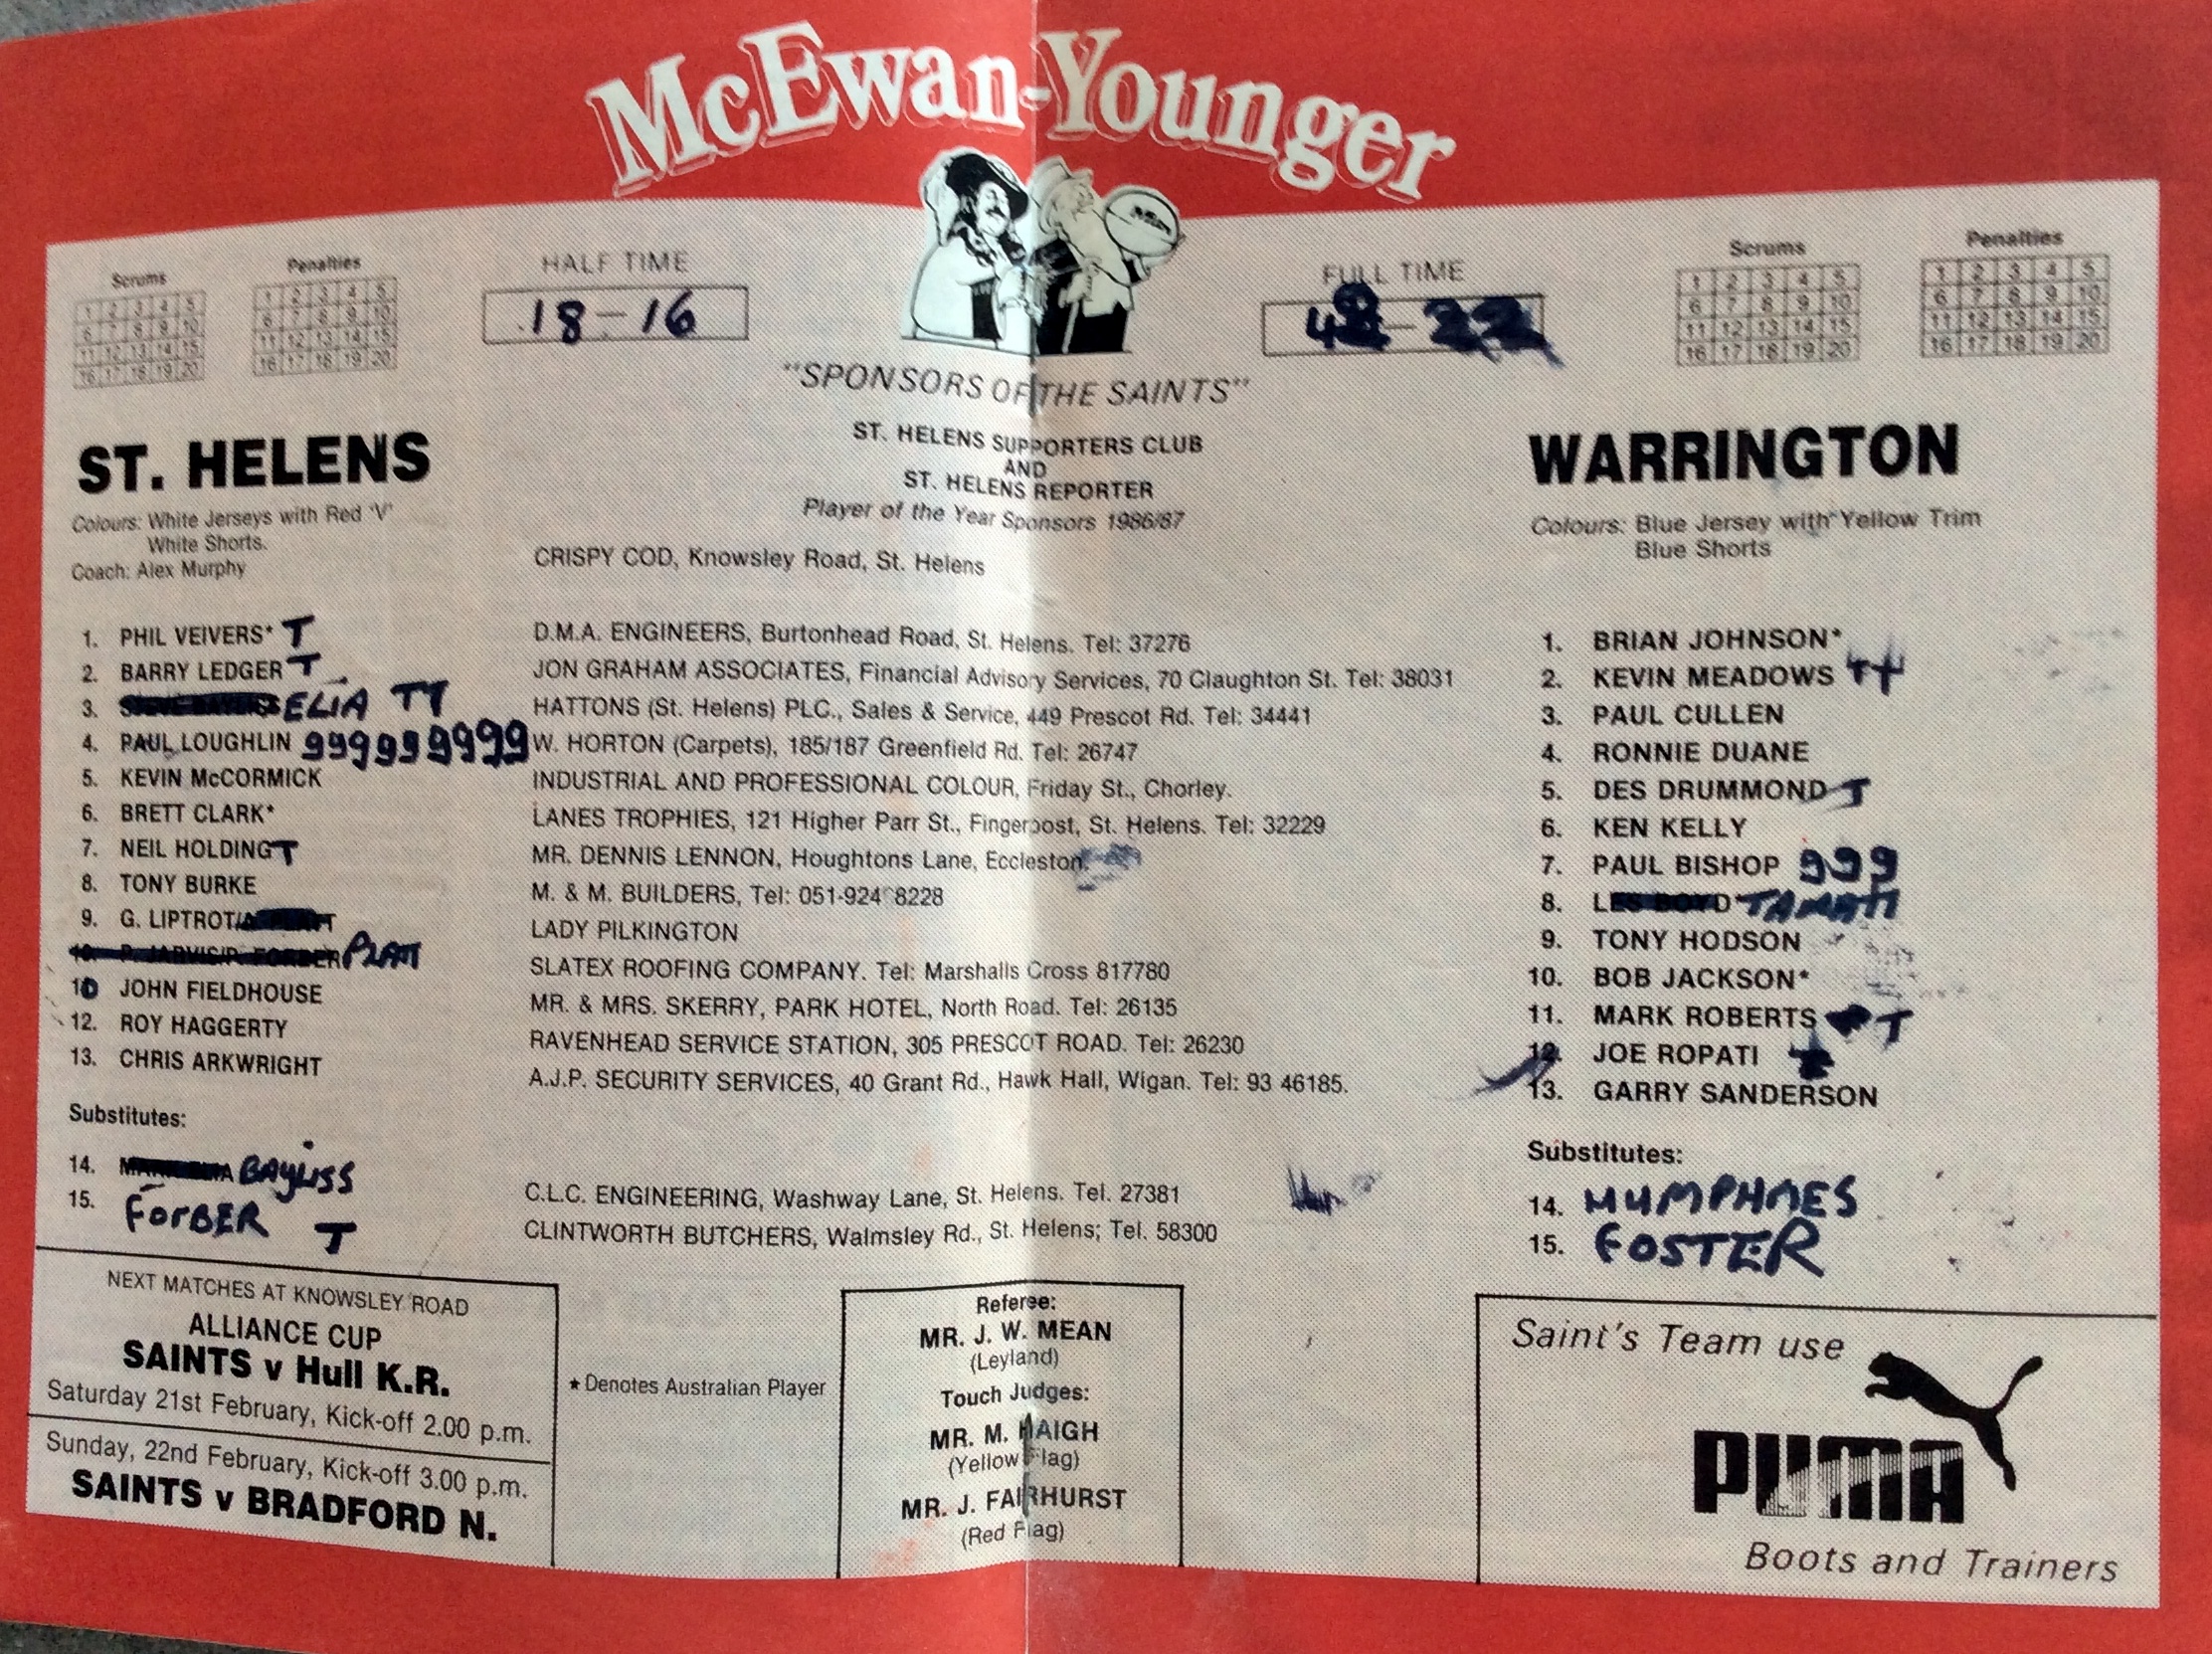 McEwan-Younger
Scrums
1 2 3 4 5
6 7 8 9 10
11 12 13 14 15
16 17 18 19 20
Penalties
1 2 3 4 5
6 7 8 9 10
11 12 13 14 15
16 17 18 19 20
HALF TIME
18-16
FULL TIME
Scrums
1 2 3 4 5
6 7 8 9 10
11 12 13 14 15
16 17 18 19 20
Penalties
1 2 3 4 5
6 7 8 9 10
11 12 13 14 15
16 17 18 19 20
"SPONSORS OF THE SAINTS"
ST. HELENS SUPPORTERS CLUB
AND
ST. HELENS REPORTER
Player of the Year Sponsors 1986/87
ST. HELENS
Colours: White Jerseys with Red 'V'
White Shorts.
Coach: Alex Murphy
1. PHIL VEIVERS* T
2. BARRY LEDGER T
3. ELIA TT
4. PAUL LOUGHLIN ggggggggg
5. KEVIN McCORMICK
6. BRETT CLARK*
7. NEIL HOLDING T
8. TONY BURKE
9. G. LIPTROT/
10. P. JARVIS/P. FORBER PLATT
10 JOHN FIELDHOUSE
12. ROY HAGGERTY
13. CHRIS ARKWRIGHT
Substitutes:
14. BAYLISS
15. FORBER T
CRISPY COD, Knowsley Road, St. Helens
D.M.A. ENGINEERS, Burtonhead Road, St. Helens. Tel: 37276
JON GRAHAM ASSOCIATES, Financial Advisory Services, 70 Claughton St. Tel: 38031
HATTONS (St. Helens) PLC., Sales & Service, 449 Prescot Rd. Tel: 34441
W. HORTON (Carpets), 185/187 Greenfield Rd. Tel: 26747
INDUSTRIAL AND PROFESSIONAL COLOUR, Friday St., Chorley.
LANES TROPHIES, 121 Higher Parr St., Fingerpost, St. Helens. Tel: 32229
MR. DENNIS LENNON, Houghtons Lane, Eccleston.
M. & M. BUILDERS, Tel: 051-924 8228
LADY PILKINGTON
SLATEX ROOFING COMPANY. Tel: Marshalls Cross 817780
MR. & MRS. SKERRY, PARK HOTEL, North Road. Tel: 26135
RAVENHEAD SERVICE STATION, 305 PRESCOT ROAD. Tel: 26230
A.J.P. SECURITY SERVICES, 40 Grant Rd., Hawk Hall, Wigan. Tel: 93 46185.
C.L.C. ENGINEERING, Washway Lane, St. Helens. Tel. 27381
CLINTWORTH BUTCHERS, Walmsley Rd., St. Helens; Tel. 58300
WARRINGTON
Colours: Blue Jersey with Yellow Trim
Blue Shorts
1. BRIAN JOHNSON*
2. KEVIN MEADOWS TT
3. PAUL CULLEN
4. RONNIE DUANE
5. DES DRUMMOND T
6. KEN KELLY
7. PAUL BISHOP ggg
8. LES BOYD* TAMATI
9. TONY HODSON
10. BOB JACKSON*
11. MARK ROBERTS T
12. JOE ROPATI
13. GARRY SANDERSON
Substitutes:
14. HUMPHRIES
15. FOSTER
NEXT MATCHES AT KNOWSLEY ROAD
ALLIANCE CUP
SAINTS v Hull K.R.
Saturday 21st February, Kick-off 2.00 p.m.
Sunday, 22nd February, Kick-off 3.00 p.m.
SAINTS v BRADFORD N.
★ Denotes Australian Player
Referee:
MR. J. W. MEAN
(Leyland)
Touch Judges:
MR. M. HAIGH
(Yellow Flag)
MR. J. FAIRHURST
(Red Flag)
Saint's Team use
PUMA
Boots and Trainers